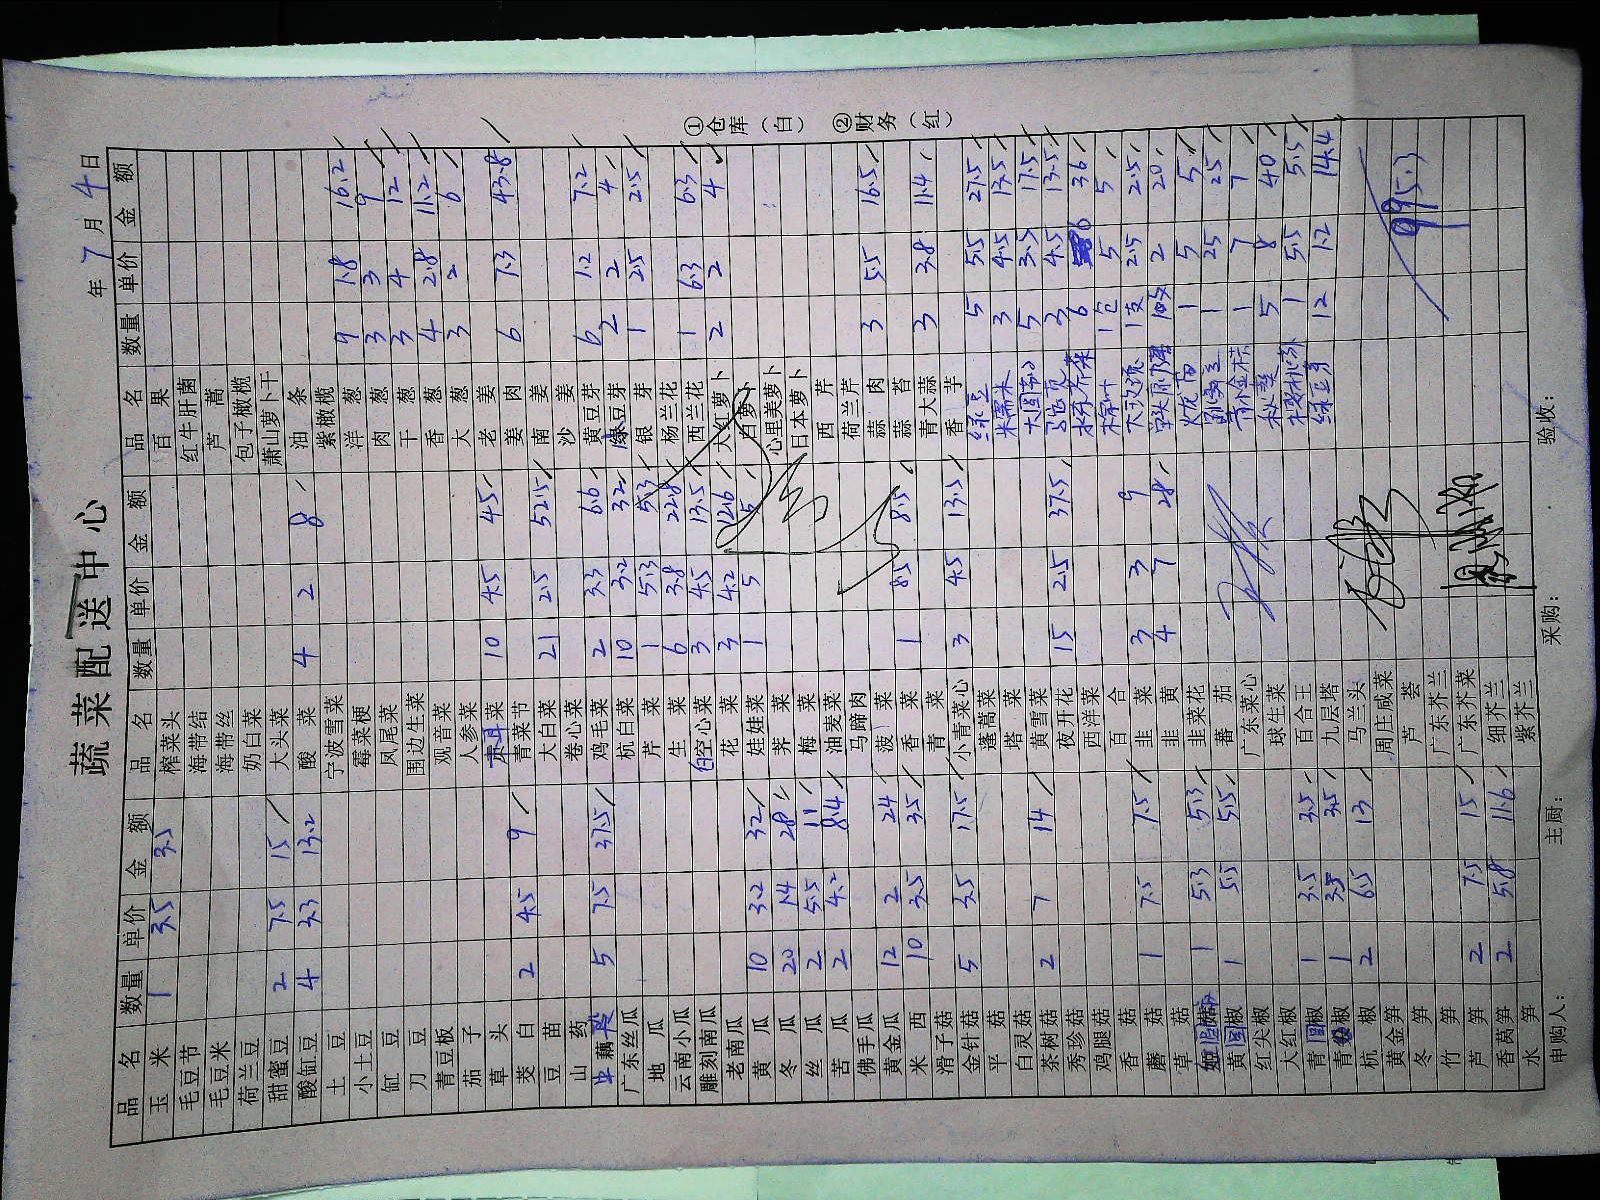 蔬菜配送中心
年 7 月 4 日
品名 数量 单价 金额 品名 数量 单价 金额 品名 数量 单价 金额
玉米 1 3.5 3.5 榨菜头 百果
毛豆节 海带结 红牛肝菌
毛豆米 海带丝 芦蒿
荷兰豆 奶白菜 包子橄榄
甜蜜豆 2 7.5 15 大头菜 萧山萝卜干
酸缸豆 4 3.3 13.2 酸菜 4 2 8 油条
土豆 宁波雪菜 紫橄榄 9 1.8 16.2
小土豆 霉菜梗 洋葱 3 3 9
缸豆 凤尾菜 肉葱 3 4 12
刀豆 围边生菜 干葱 4 2.8 11.2
青豆板 观音菜 香葱 3 2 6
茄子 人参菜 大葱
草头 菜 10 4.5 45 老姜 6 7.3 43.8
茭白 2 4.5 9 青菜节 姜肉
豆苗 大白菜 21 2.5 52.5 南姜
山药 卷心菜 沙姜
藕段 5 7.5 37.5 鸡毛菜 2 3.3 6.6 黄豆芽 6 1.2 7.2
广东丝瓜 杭白菜 10 3.2 32 绿豆芽 2 2 4
地瓜 芹菜 1 5.3 5.3 银芽 1 2.5 2.5
云南小瓜 生菜 6 3.8 22.8 杨兰花
雕刻南瓜 空心菜 3 4.5 13.5 西兰花 1 6.3 6.3
老南瓜 花菜 3 4.2 12.6 大红萝卜 2 2 4
黄瓜 10 3.2 32 娃娃菜 1 5 5 白萝卜
冬瓜 20 1.4 28 荠菜 心里美萝卜
丝瓜 2 5.5 11 梅菜 日本萝卜
苦瓜 2 4.2 8.4 油麦菜 西芹
佛手瓜 马蹄肉 荷兰芹
黄金瓜 12 2 24 菠菜 蒜肉 3 5.5 16.5
米西 10 3.5 35 香菜 1 8.5 8.5 蒜苔
滑子菇 青菜 青大蒜 3 3.8 11.4
金针菇 5 3.5 17.5 小青菜心 3 4.5 13.5 香芋
平菇 蓬蒿菜 绿豆 5 5.5 27.5
白灵菇 塔菜 糯米 3 4.5 13.5
茶树菇 2 7 14 黄雪菜 15 2.5 37.5 5 3.5 17.5
秀珍菇 夜开花 3 4.5 13.5
鸡腿菇 西洋菜 6 6 36
香菇 百合 1包 5 5
蘑菇 1 7.5 7.5 韭菜 3 3 9 1支 2.5 2.5
草菇 韭黄 4 7 28 2 20
菇 1 5.3 5.3 韭菜花 1 5 5
黄圆椒 1 5.5 5.5 蕃茄 1 25 25
红尖椒 广东菜心 1 7 7
大红椒 球生菜 5 8 40
青圆椒 1 3.5 3.5 百合王 1 5.5 5.5
青椒 1 3.5 3.5 九层塔 绿豆芽 12 1.2 14.4
杭椒 2 6.5 13 马兰头
黄金笋 周庄咸菜
冬笋 芦荟
竹笋 广东芥兰
芦笋 2 7.5 15 广东芥菜
香莴笋 2 5.8 11.6 细芥兰
水笋 紫芥兰
995.3
①仓库（白） ②财务（红）
申购人： 主厨： 采购： 验收：